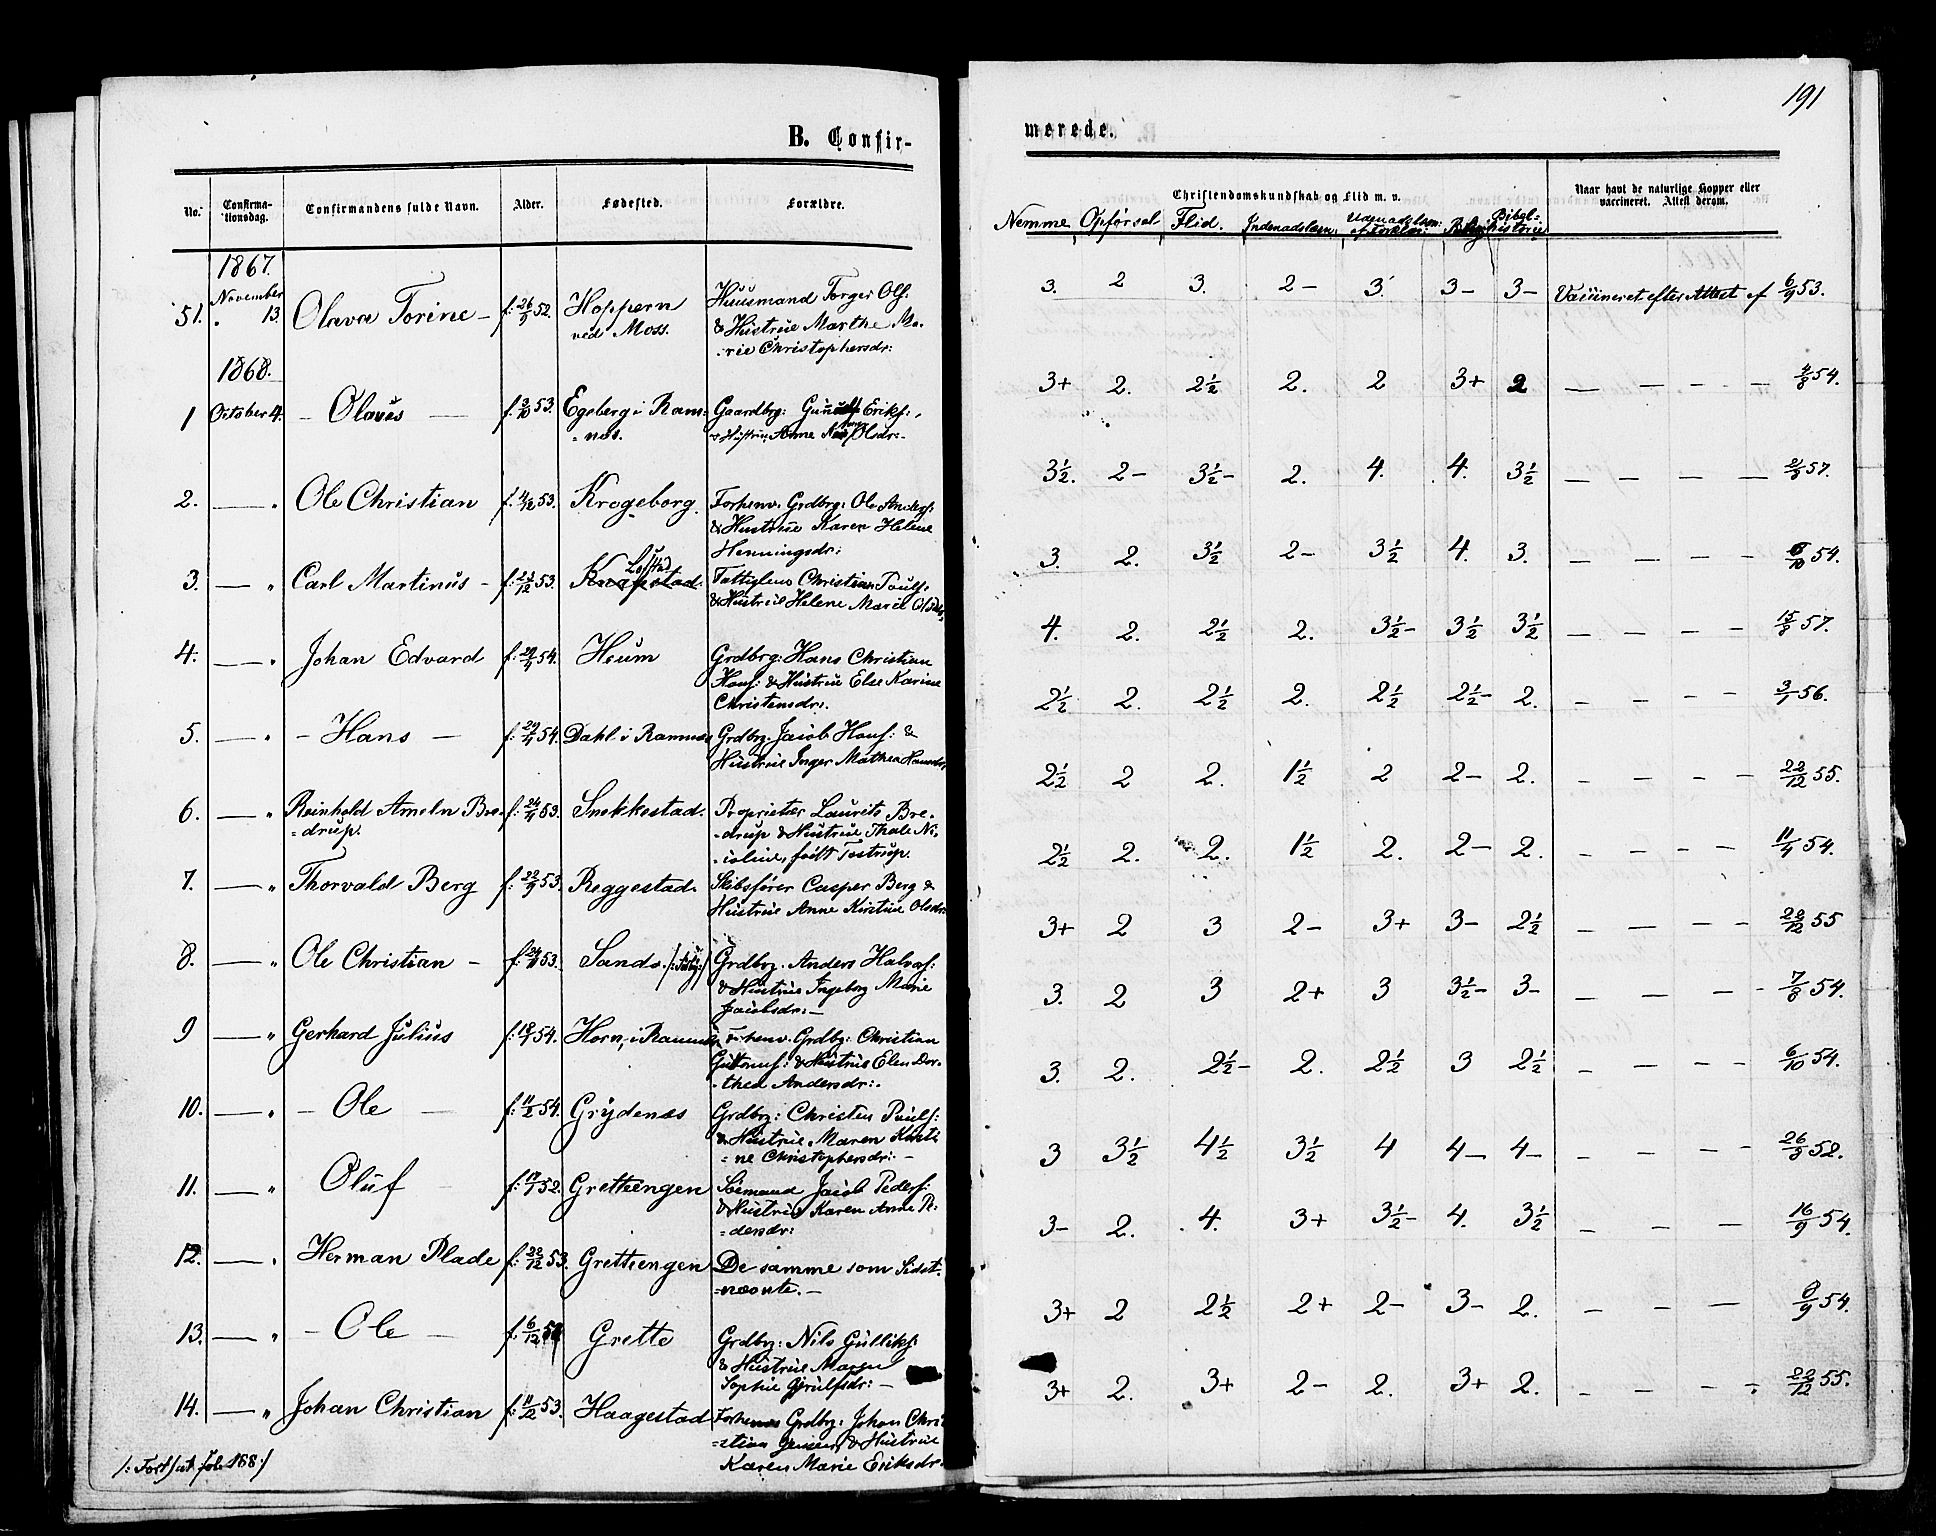 191
B. Confir-
merede.
No.
Confirma-
tionsdag.
Confirmandens fulde Navn.
Alder.
Fødested.
Forældre.
Christendomskundskab og Flid m. v.
Naar havt de naturlige Kopper eller
vaccineret. Attest derom.
Nemme Opførsel Flid. Indenadslæsn. Udenadslæsn: Bibel-
historie
1867.
November
51. " 13. Olava Torine - f: 26/9 52. Hoppern
ved Moss.
Huusmand Torger Ols:
& Hustrue Marthe Ma-
-rie Christophersdr:
3. 2 3. 2- 3. 3- 3- Vaccineret efter Attest af 6/9 53.
1868.
1 October 4. - Olaus - f. 3/10 53. Egeberg i Ram-
=nes.
Gaardbrg: Eriks:,
& Hustrue Anne Olsdr:-
3+ 2. 2½ 2. 2 3+ 2 — — - - 54.
2. — " Ole Christian f. 4/12 53. Krogeborg.
Forhenv. Grdbrg: Ole Anders:
& Hustrue Karen Helene
Henningsdr:
3½. 2- 3½- 2. 4. 4. 3½ — — — — 57.
3. — " Carl Martinus - f: 53.
Tattiglem Christian Pouls:
& Hustrue Helene Marie
3. 2. 3½ 2- 3½ 4. 3. — - - - 54.
4. — " Johan Edvard f: 54. Heum
Grdbrg: Hans Christian
Hans: & Hustrue Else Karine
Christensdr:.
4. 2. 2½ 2. 3½- 3½ 3½ — — - - 15/8 57.
5. — " - Hans - f: 54. Dahl i Ramnæs
Grdbrg. Jacob Hans: &
Hustrue Inger Mathea Hansdr:
2½ 2. 2½ 2. 2½ 2½- 2. - - - - 56.
6. — " Reinhold Ameln Bre-
=drup.
f: 24/4 53. Snekkestad.
Proprietær Laurits Bre-
-drup & Hustrue Thale Ni-
-coline, født Testrup.
2½ 2 2. 1½ 2 2- 2. - - - - 22/12 55.
7. — " Thorvald Berg f: 22/9 53. Reggestad.
Skibsfører Casper Berg &
Hustrue Anne Kirstine Olsdr:
2½ 2. 2. 1½ 2. 2- 2. - - - - 11/4 54.
8. — " Ole Christian - f: 53. Sando.
Grdbrg. Anders Halvors:
& Hustrue Ingeborg Marie
Jacobsdr: -
3+ 2 3 2- 3+ 3- 2½ - - - - 22/12 55
9 — " Gerhard Julius f: 54. Horn, i Ramnæs
Forhenv. Grdbrg: Christian
Guttorms: & Hustrue Elen Dor-
-thea Andersdr:.
3. 2 3 2+ 3 3½- 3- - - - - 7/8 54.
10. — " - Ole — f: 11/2 54. Grydenæs
Grdbrg: Christen Pouls:
& Hustrue Maren Kirsti
=ne Christophersdr: -
3. 2. 2½- 2. 2½ 3 2½ - - - - 6/10 54.
11. — " Oluf - f: 52. Gretteengen
Sømand Jacob Peders:
& Hustrue Karen Anne P:
=dersdr:
3 3½ 4½ 3½ 4 4- 4- - - - - 26/8 58.
12. — " Herman Plade f: 22/12 53. Gretteengen
De samme som Sidst-
=nævnte. -
3- 2. 4. 3+ 3½- 4. 3½ - - - 16/9 54.
13. — " - Ole - f. 6/12 Grette
Grdbrg: Nils Gulliks:
& Hustrue Maren
Sophie Gjerulfsdr: -
3+ 2 2½ 2+ 2- 3- 2. - - — 54.
14. — " Johan Christian f: 11/12 53. Haagestad
Forhenv Grdbrg: Johan Chri
=stian Jensen & Hustrue
Karen Marie Eriksdr.
3+ 2. 3+ 2- 2. 3+ 2. - - - - 22/12 55.
/: Fortsat fol. 168 :/